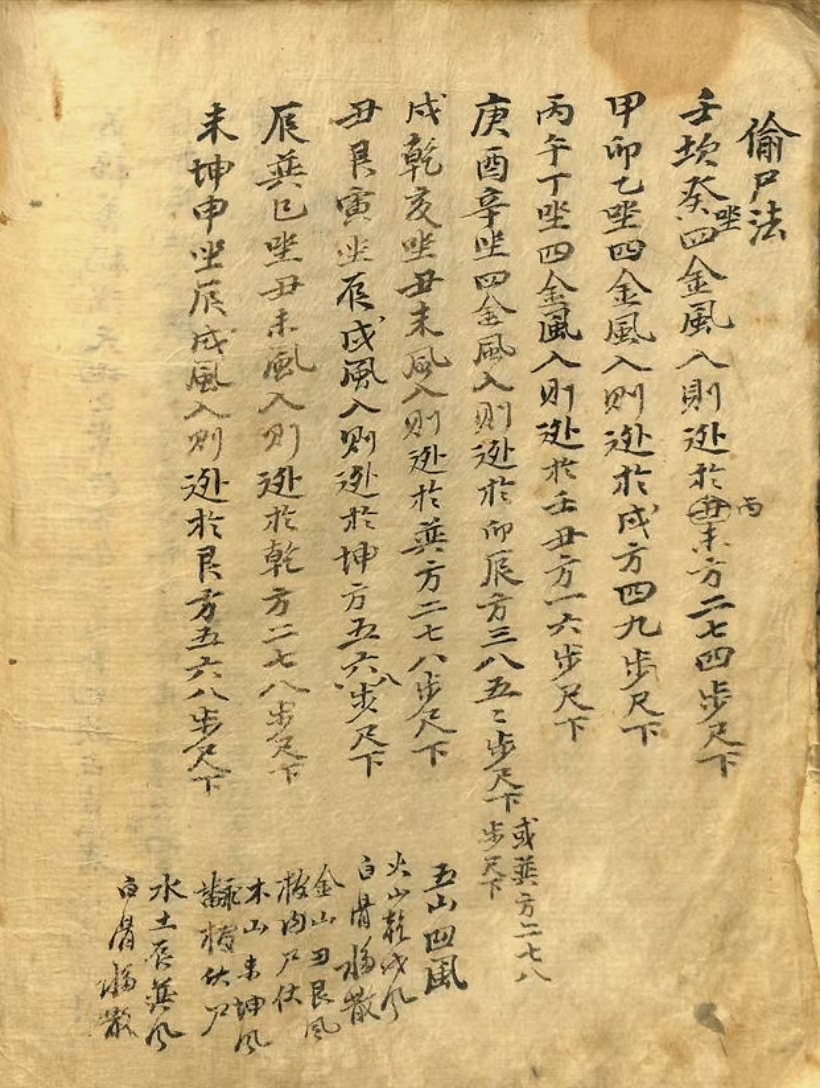 偷尸法
壬坎癸坐四金風入則逃於丑未丙方二七四步尺下
甲卯乙坐四金風入則逃於戌方四九步尺下
丙午丁坐四金風入則逃於壬丑方一六步尺下
庚酉辛坐四金風入則逃於卯辰方三八五二步尺下或巽方二七八步尺下
戌乾亥坐丑未風入則逃於巽方二七八步尺下
丑艮寅坐辰戌風入則逃於坤方五六八步尺下
辰巽巳坐丑未風入則逃於乾方二七八步尺下
未坤申坐辰戌風入則逃於艮方五六八步尺下
五山四風
火山乾戌風
白骨移散
金山丑艮風
板內尸伏
木山未坤風
飜棺伏尸
水土辰巽風
白骨移散